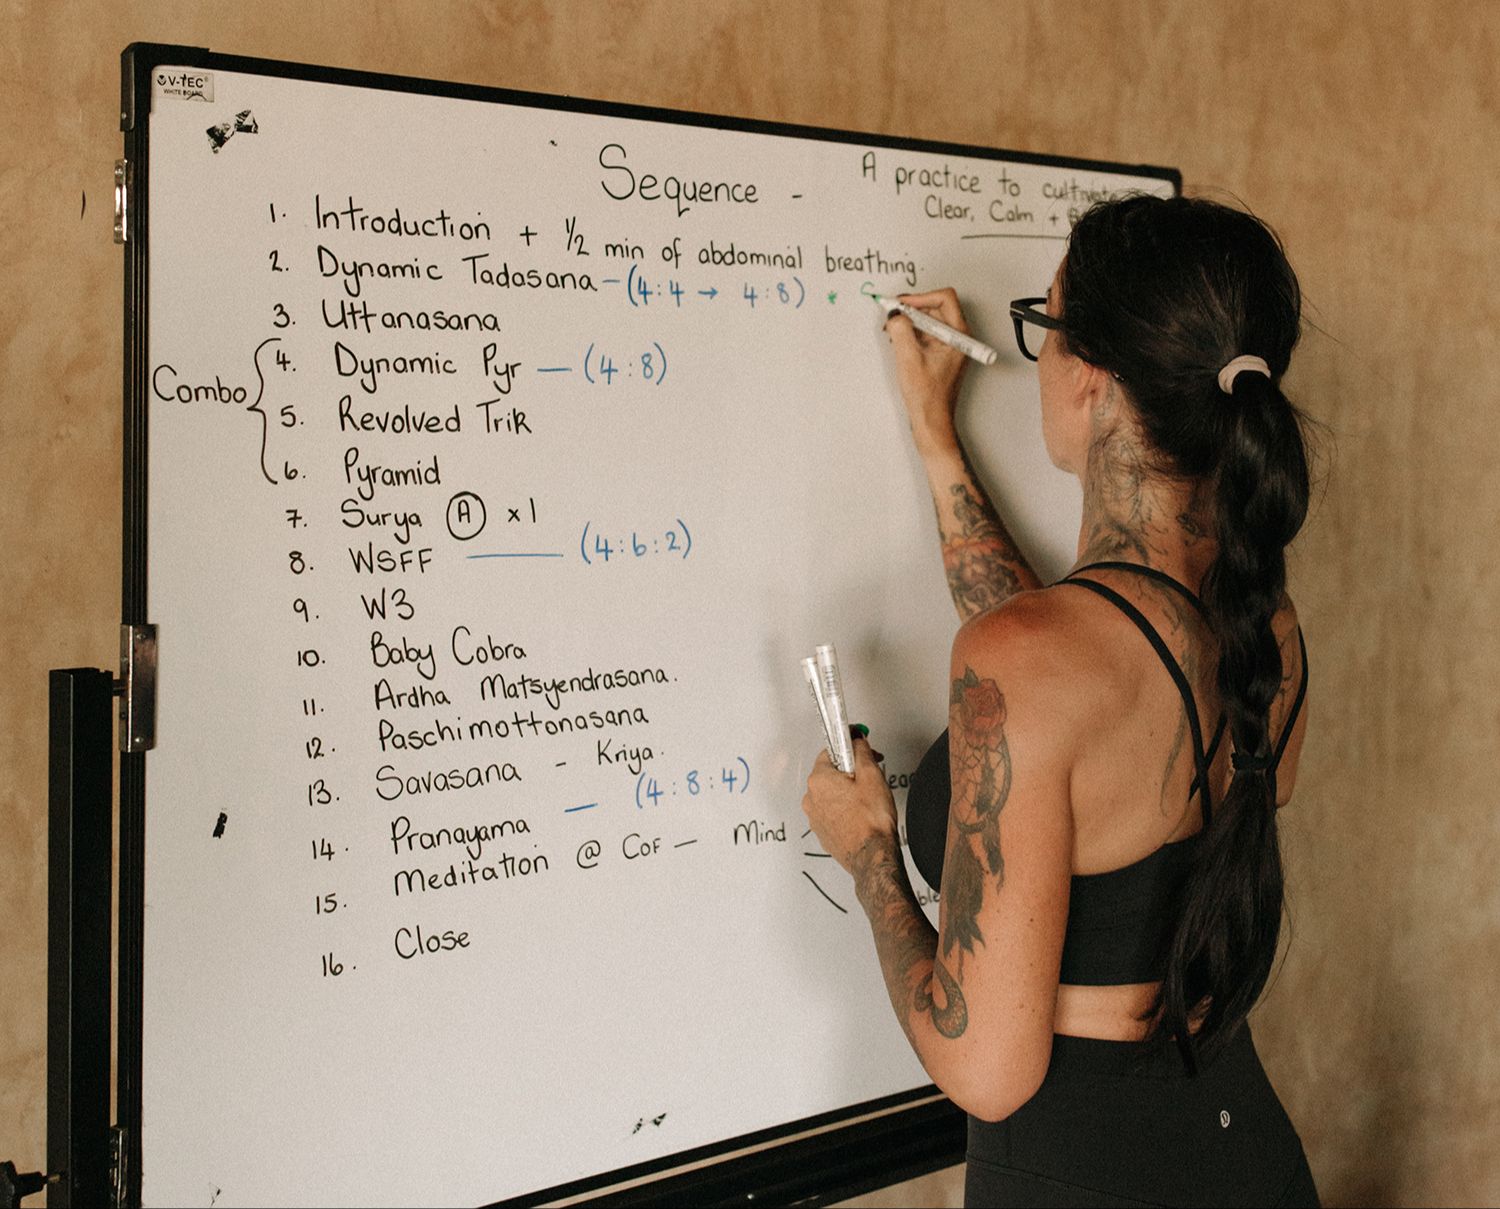 V-TEC
WHITE BOARD
Sequence -
A practice to cultivate
Clear, Calm +
1. Introduction + 1/2 min of abdominal breathing.
2. Dynamic Tadasana - (4:4 → 4:8) *
3. Uttanasana
Combo
4. Dynamic Pyr — (4:8)
5. Revolved Trik
6. Pyramid
7. Surya Ⓐ x 1
8. WSFF — (4:6:2)
9. W3
10. Baby Cobra
11. Ardha Matsyendrasana.
12. Paschimottonasana
13. Savasana - Kriya.
14. Pranayama — (4:8:4)
15. Meditation @ CoF — Mind
16. Close